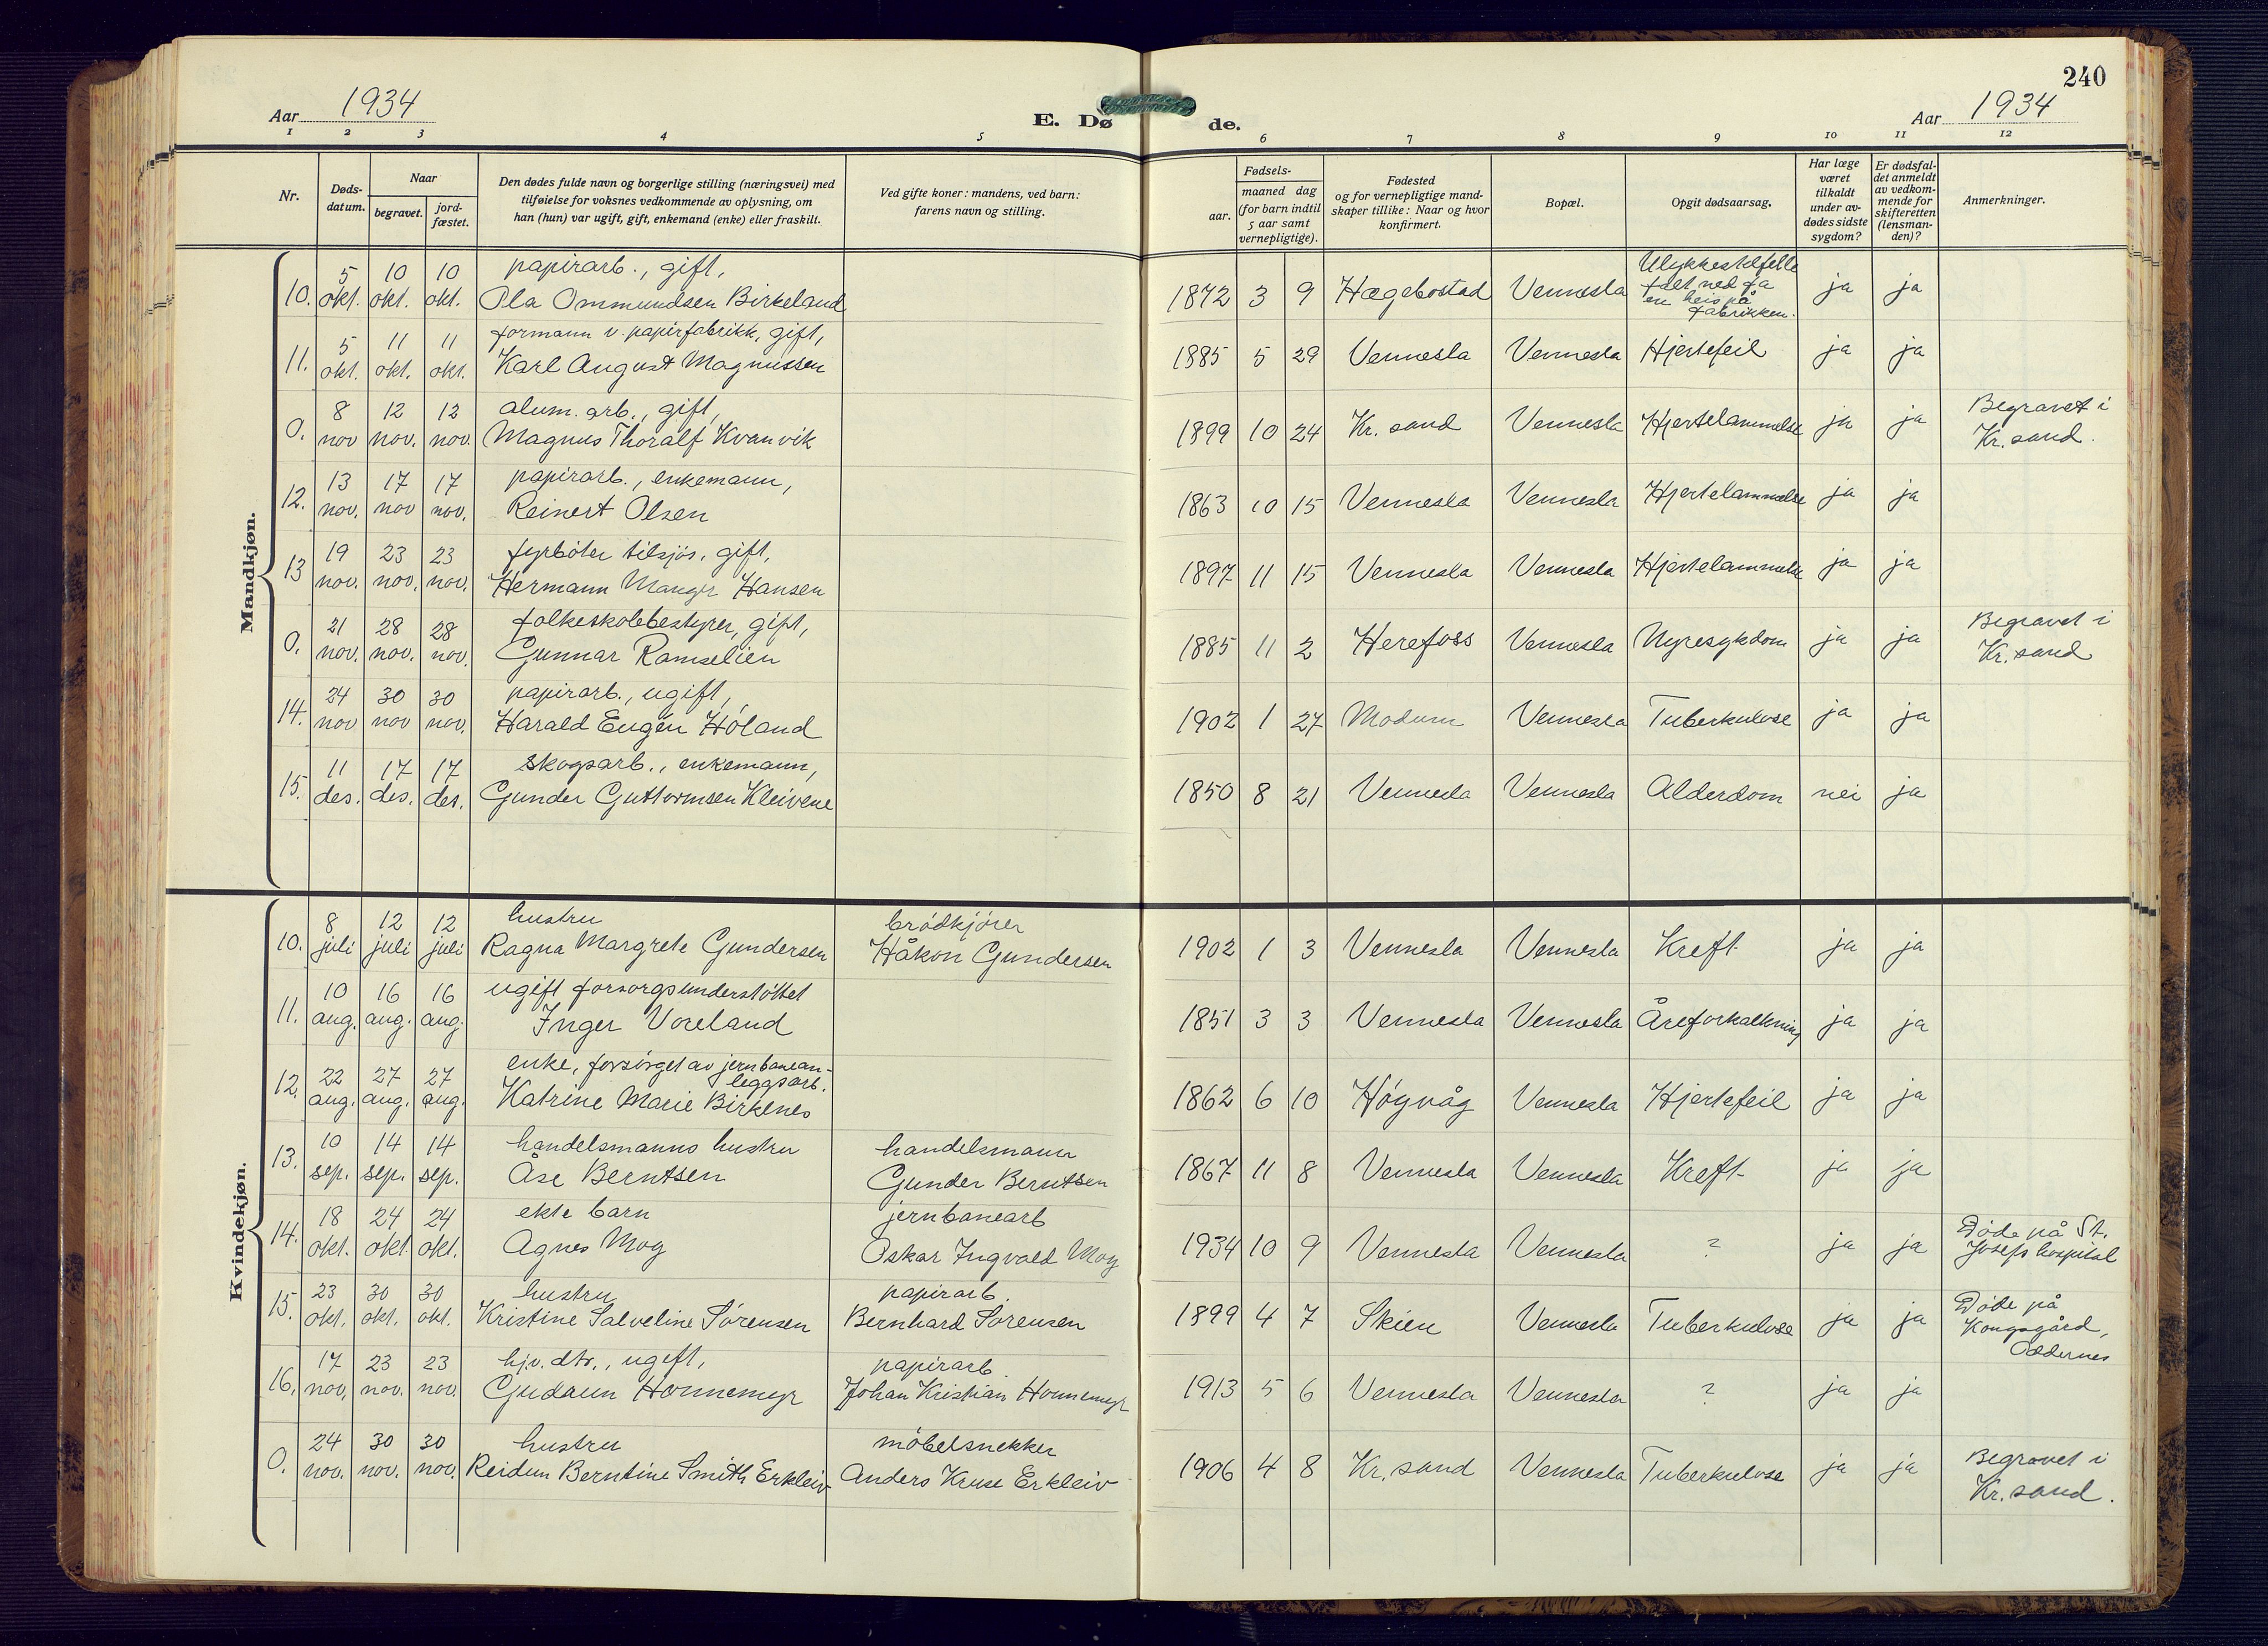 240
Aar 1934
E. Dø de.
Aar 1934
1 2 3 4 5 6 7 8 9 10 11 12
Nr.
Døds-
datum.
Naar
begravet.
jord-
fæstet.
Den dødes fulde navn og borgerlige stilling (næringsvei) med
tilføielse for voksnes vedkommende av oplysning, om
han (hun) var ugift, gift, enkemand (enke) eller fraskilt.
Ved gifte koner: mandens, ved barn:
farens navn og stilling.
Fødsels-
aar.
maaned dag
(for barn indtil
5 aar samt
vernepligtige).
Fødested
og for vernepligtige mand-
skaper tillike: Naar og hvor
konfirmert.
Bopæl.
Opgit dødsaarsag.
Har læge
været
tilkaldt
under av-
dødes sidste
sygdom?
Er dødsfal-
det anmeldt
av vedkom-
mende for
skifteretten
(lensman-
den)?
Anmerkninger.
Mandkjøn.
10. 5 okt. 10 okt. 10 okt. papirarb., gift,
Ola Ommundsen Birkeland 1872 3 9 Hægebostad Vennesla Ulykkestilfelle
falt ned fra
en heis på
fabrikken. ja ja
11. 5 okt. 11 okt. 11 okt. formann v. papirfabrikk, gift,
Karl August Magnussen 1885 5 29 Vennesla Vennesla Hjertefeil ja ja
0. 8 nov 12 nov. 12 nov. alum. arb., gift,
Magnus Thoralf Kvanvik 1899 10 24 Kr. sand Vennesla Hjertelammelse ja ja Begravet i
Kr. sand.
12. 13 nov. 17 nov 17 nov. papirarb., enkemann,
Reinert Olsen 1863 10 15 Vennesla Vennesla Hjertelammelse ja ja
13 19 nov. 23 nov. 23 nov. fyrbøter tilsjøs, gift,
Hermann Hansen 1897 11 15 Vennesla Vennesla Hjertelammelse ja ja
0. 21 nov. 28 nov. 28 nov. folkeskolebestyrer, gift,
Gunnar Ramselien 1885 11 2 Herefoss Vennesla Nyresykdom ja ja Begravet i
Kr. sand
14. 24 nov 30 nov 30 nov. papirarb., ugift,
Harald Eugén Hóland 1902 1 27 Modum Vennesla Tuberkulose ja ja
15. 11 des. 17 des. 17 des. skogsarb., enkemann,
Gunder Guttormsen Kleivene 1850 8 21 Vennesla Vennesla Alderdom nei ja
Kvindekjøn.
10. 8 juli 12 juli 12 juli hustru
Ragna Margrete Gundersen brødkjører
Håkon Gundersen 1902 1 3 Vennesla Vennesla Kreft ja ja
11. 10 aug. 16 aug. 16 aug. ugift forsorgsunderstøttet
Inger Voreland 1851 3 3 Vennesla Vennesla Åreforkalkning ja ja
12. 22 aug. 27 aug. 27 aug. enke, forsørget av jernbanean-
leggsarb.
Katrine Marie Birkenes 1862 6 10 Høgvåg Vennesla Hjertefeil ja ja
13. 10 sep. 14 sep. 14 sep. handelsmanns hustru
Åse Berntsen handelsmann
Gunder Berntsen 1867 11 8 Vennesla Vennesla Kreft ja ja
14. 18 okt. 24 okt. 24 okt. ekte barn
Agnes Moy jernbanearb
Oskar Ingvald Moy 1934 10 9 Vennesla Vennesla ? ja ja Døde på St.
Josefs hospital
15. 23 okt. 30 okt. 30 okt. hustru
Kristine Salveline Sörensen papirarb.
Bernhard Sorensen 1899 4 7 Skien Vennesla Tuberkulose ja ja Døde på
Kongsgård,
Oddernes
16. 17 nov. 23 nov. 23 nov. hjv. dtr., ugift,
Gudrun Honnemyr papirarb.
Johan Kristian Honnemyr 1913 5 6 Vennesla Vennesla ? ja ja
0. 24 nov. 30 nov. 30 nov. hustru
Reidun Berntine Smith Erkleiv møbelsnekker
Anders Kruse Erkleiv 1906 4 8 Kr. sand Vennesla Tuberkulose ja ja Begravet i
Kr. sand.